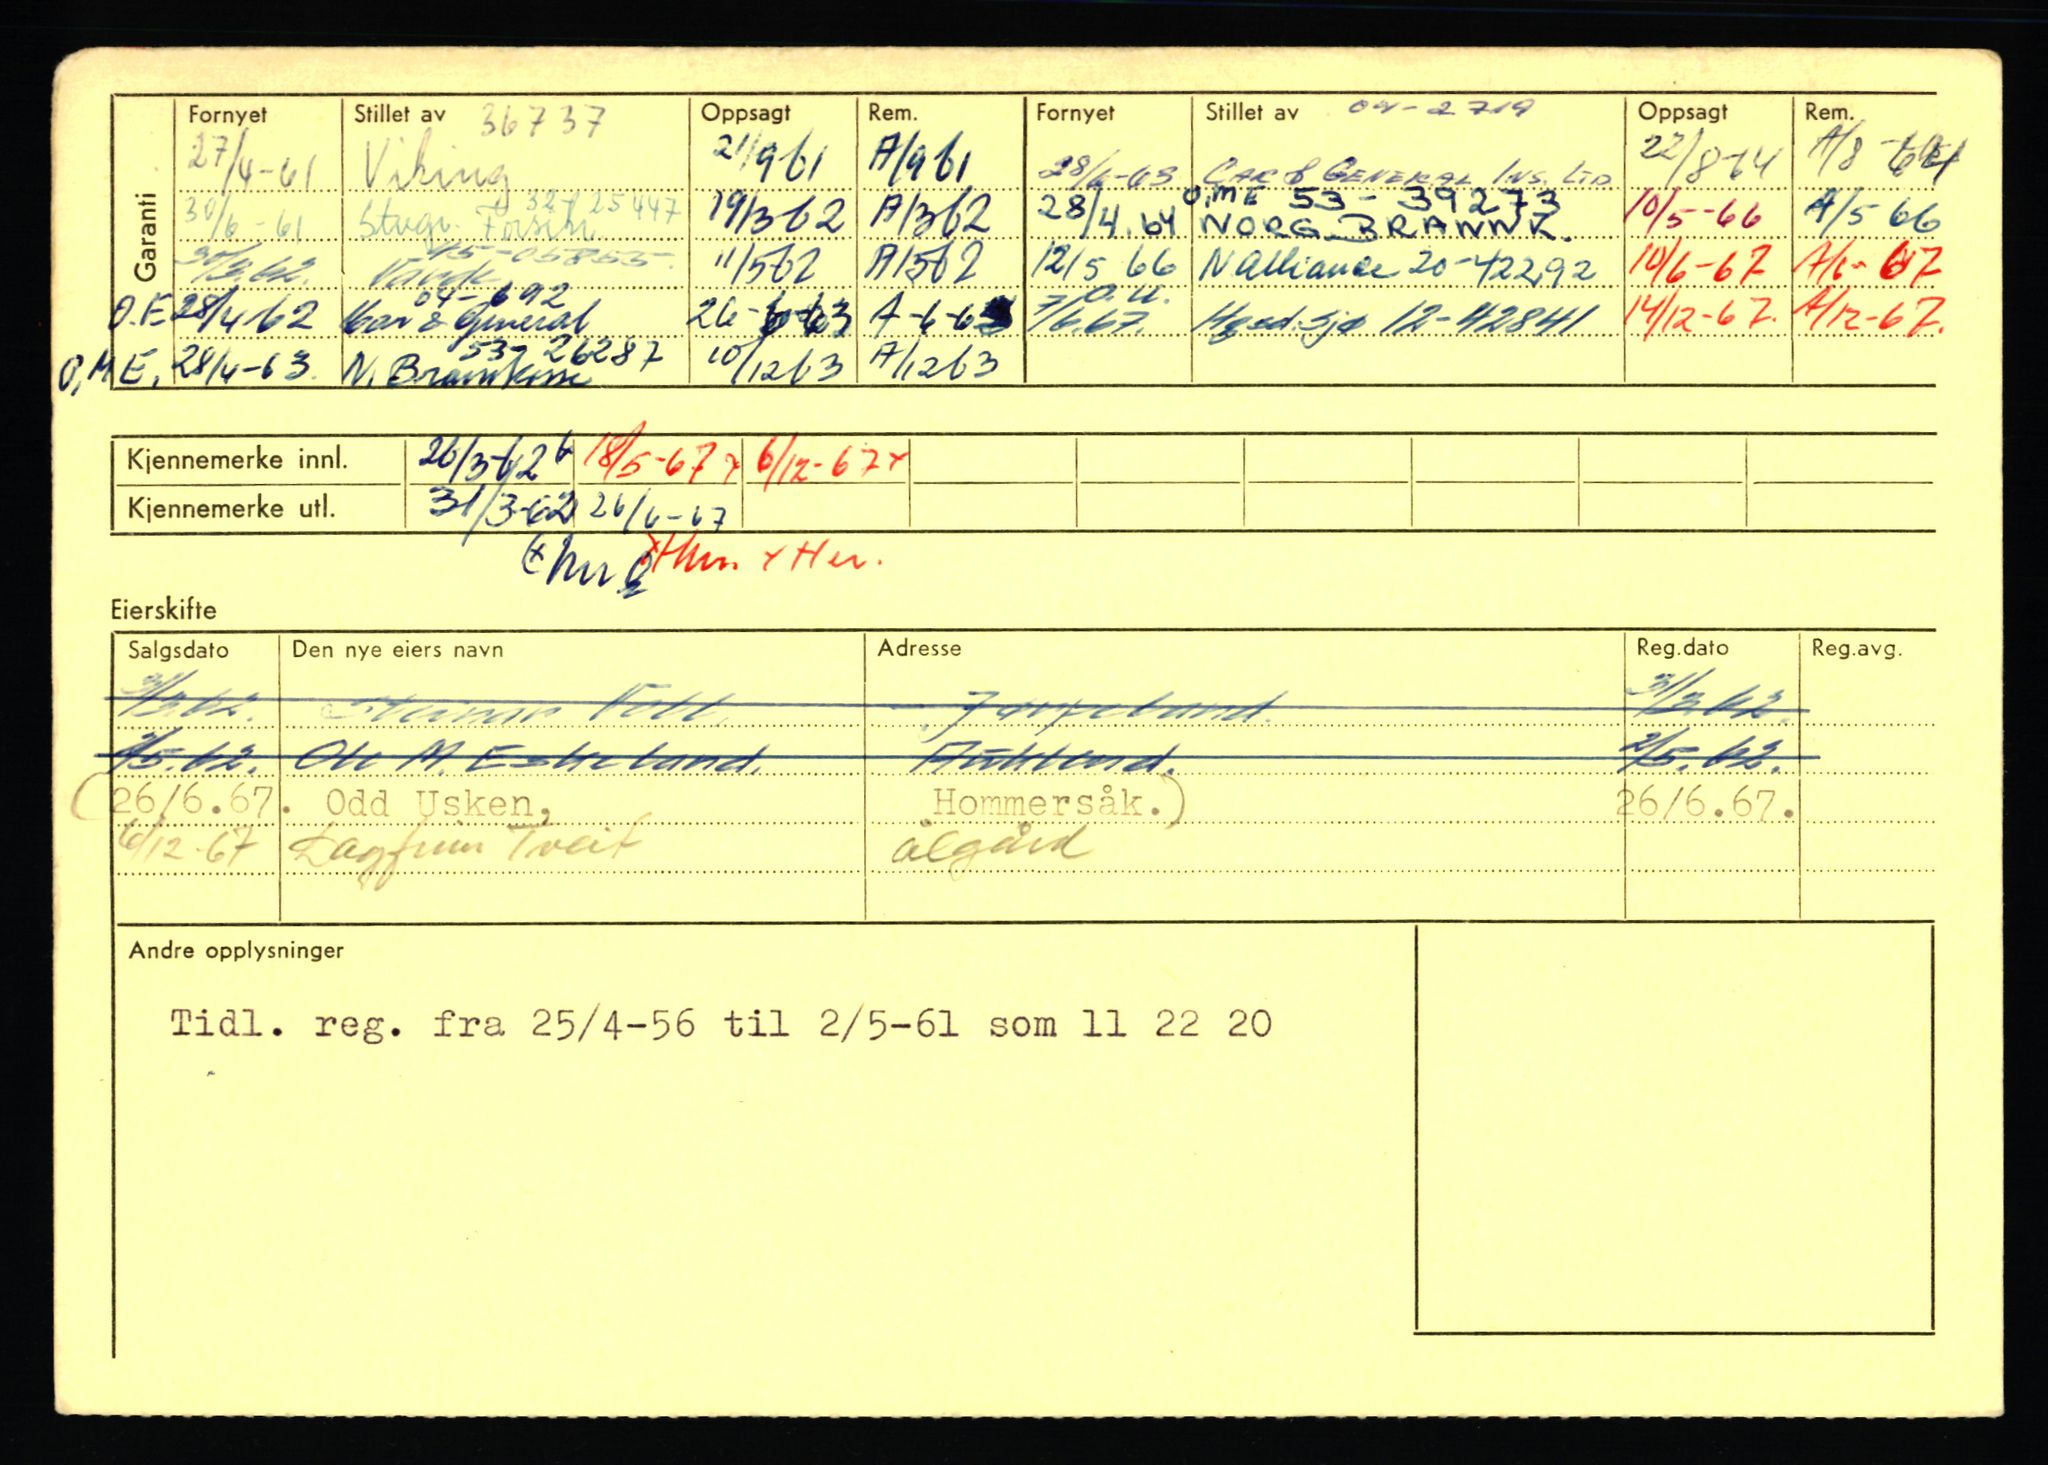 Garanti
Fornyet Stillet av 36737 Oppsagt Rem. Fornyet Stillet av 04-2719 Oppsagt Rem.
27/4-61 Viking 21/9 61 A/9 61 28/6-63 CAR & GENERAL INS. LTD 22/8-64 A/8-64
32-25447 O,ME 53-39273
30/6-61 Stvgr. Forsikr. 19/3 62 A/3 62 28/4.64 NORG BRANNK. 10/5-66 A/5 66
45-05855.
30/3.62. 11/5 62 A/5 62 12/5 66 N alliance 20-42292 10/6-67 A/6-67
04-692 O.U.
O.E. 28/4 62 Car & General 26-6-63 A-6-63 7/6.67. Hgsd. Sjø 12-42841 14/12-67. A/12-67.
53-26287
O,ME. 28/4-63. N. Brannkasse 10/12 63 A/12 63
Kjennemerke innl. 26/3-62 x 18/5-67 x 6/12-67 x
Kjennemerke utl. 31/3-62 26/6-67
x Her.
Eierskifte
Salgsdato Den nye eiers navn Adresse Reg.dato Reg.avg.
31/3.62. Jørpeland. 31/3.62.
2/5.62. Ole M. Eskeland. 2/5.62.
(26/6.67. Odd Usken, Hommersåk.) 26/6.67.
6/12-67 Dagfinn Tveit Ålgård
Andre opplysninger
Tidl. reg. fra 25/4-56 til 2/5-61 som 11 22 20